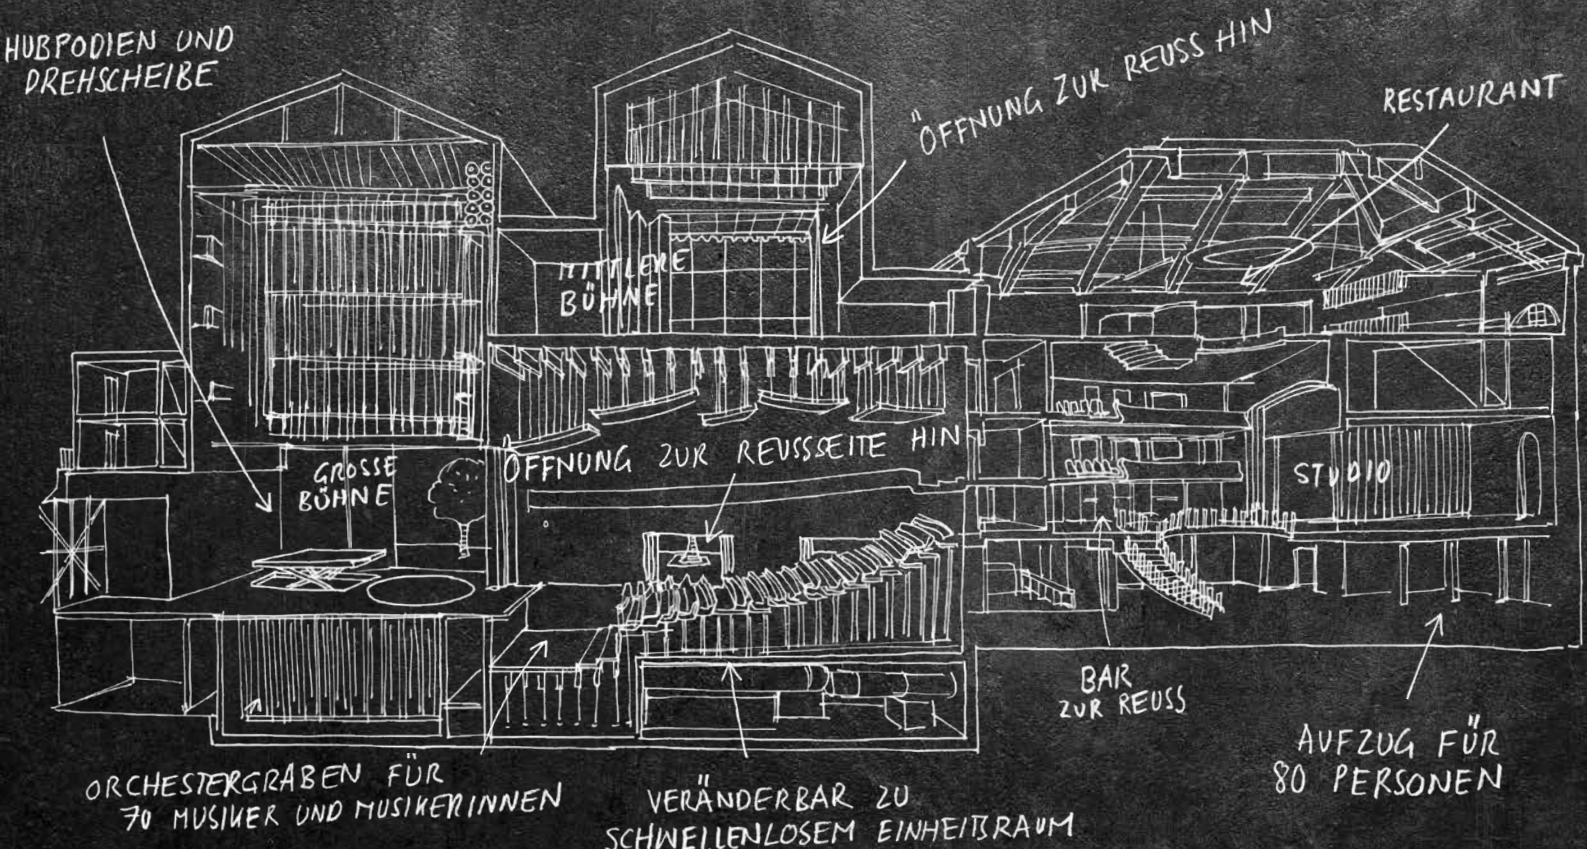 HUBPODIEN UND
DREHSCHEIBE
ÖFFNUNG ZUR REUSS HIN
RESTAURANT
MITTLERE
BÜHNE
ÖFFNUNG ZUR REUSSSEITE HIN
GROSSE
BÜHNE
STUDIO
BAR
ZUR REUSS
AUFZUG FÜR
80 PERSONEN
ORCHESTERGRABEN FÜR
70 MUSIKER UND MUSIKERINNEN
VERÄNDERBAR ZU
SCHWELLENLOSEM EINHEITSRAUM